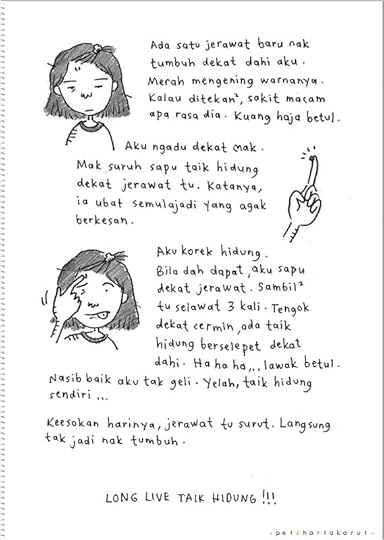 Ada satu jerawat baru nak
tumbuh dekat dahi aku.
Merah mengening warnanya.
Kalau ditekan², sakit macam
apa rasa dia. Kuang haja betul.
Aku ngadu dekat mak.
Mak suruh sapu taik hidung
dekat jerawat tu. Katanya,
ia ubat semulajadi yang agak
berkesan.
Aku korek hidung.
Bila dah dapat, aku sapu
dekat jerawat. Sambil²
tu selawat 3 kali. Tengok
dekat cermin, ada taik
hidung berselepet dekat
dahi. Ha ha ha... lawak betul.
Nasib baik aku tak geli. Yelah, taik hidung
sendiri...
Keesokan harinya, jerawat tu surut. Langsung
tak jadi nak tumbuh.
LONG LIVE TAIK HIDUNG!!!
-petihartakarut-